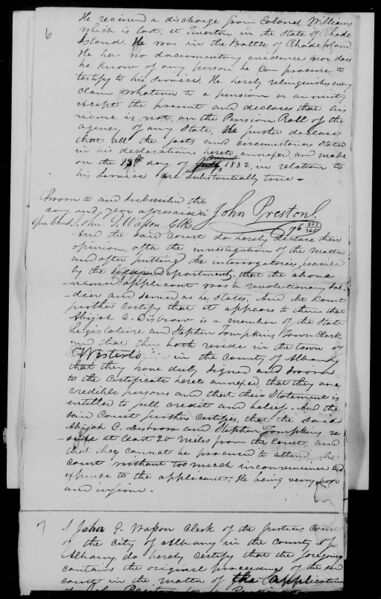 6
He received a discharge from Colonel Williams
which is lost, at Tiverton in the State of Rhode
Island. He was in the Battle of Rhode Island
He has no documentary evidence nor does
he know of any person he can procure to
testify to his service. He hereby relinquishes every
claim whatever to a pension or annuity
except the present and declares that his
name is not on the Pension Roll of the
agency of any State, He further declares
that all the facts and circumstances stated
in his declaration hereto annexed and made
on the day of 1832 in relation to
his service are substantially true.
Sworn to and subscribed the
day and year aforesaid in John Preston
open Court. John G. Wasson Clk
And the said Court do hereby declare their
opinion, after the investigation of the matter
and after putting the interrogatories prescribed
by the Department, that the above
named applicant was a revolutionary sol-
dier and served as he states. And the Court
further certify that it appears to them that
Abijah C. Disbrow is a member of the State
Legislature and Stephen Tompkins Town Clerk
and that they both reside in the town of
Westerlo in the County of Albany
that they have duly signed and sworn
to the Certificate hereto annexed, that they are
credible persons and that their Statement is
entitled to full credit and belief. And the
said Court further certifies, that the said
Abijah C. Disbrow and Stephen Tompkins re-
side at least 20 miles from the Court, and
that they cannot be procured to attend the
Court without too much inconvenience and
expense to the applicant, He being very poor
and infirm.
7
I John G. Wasson Clerk of the Justices Court
of the city of Albany in the County of
Albany do hereby certify that the foregoing
contains the original proceedings of the said
court in the matter of the application